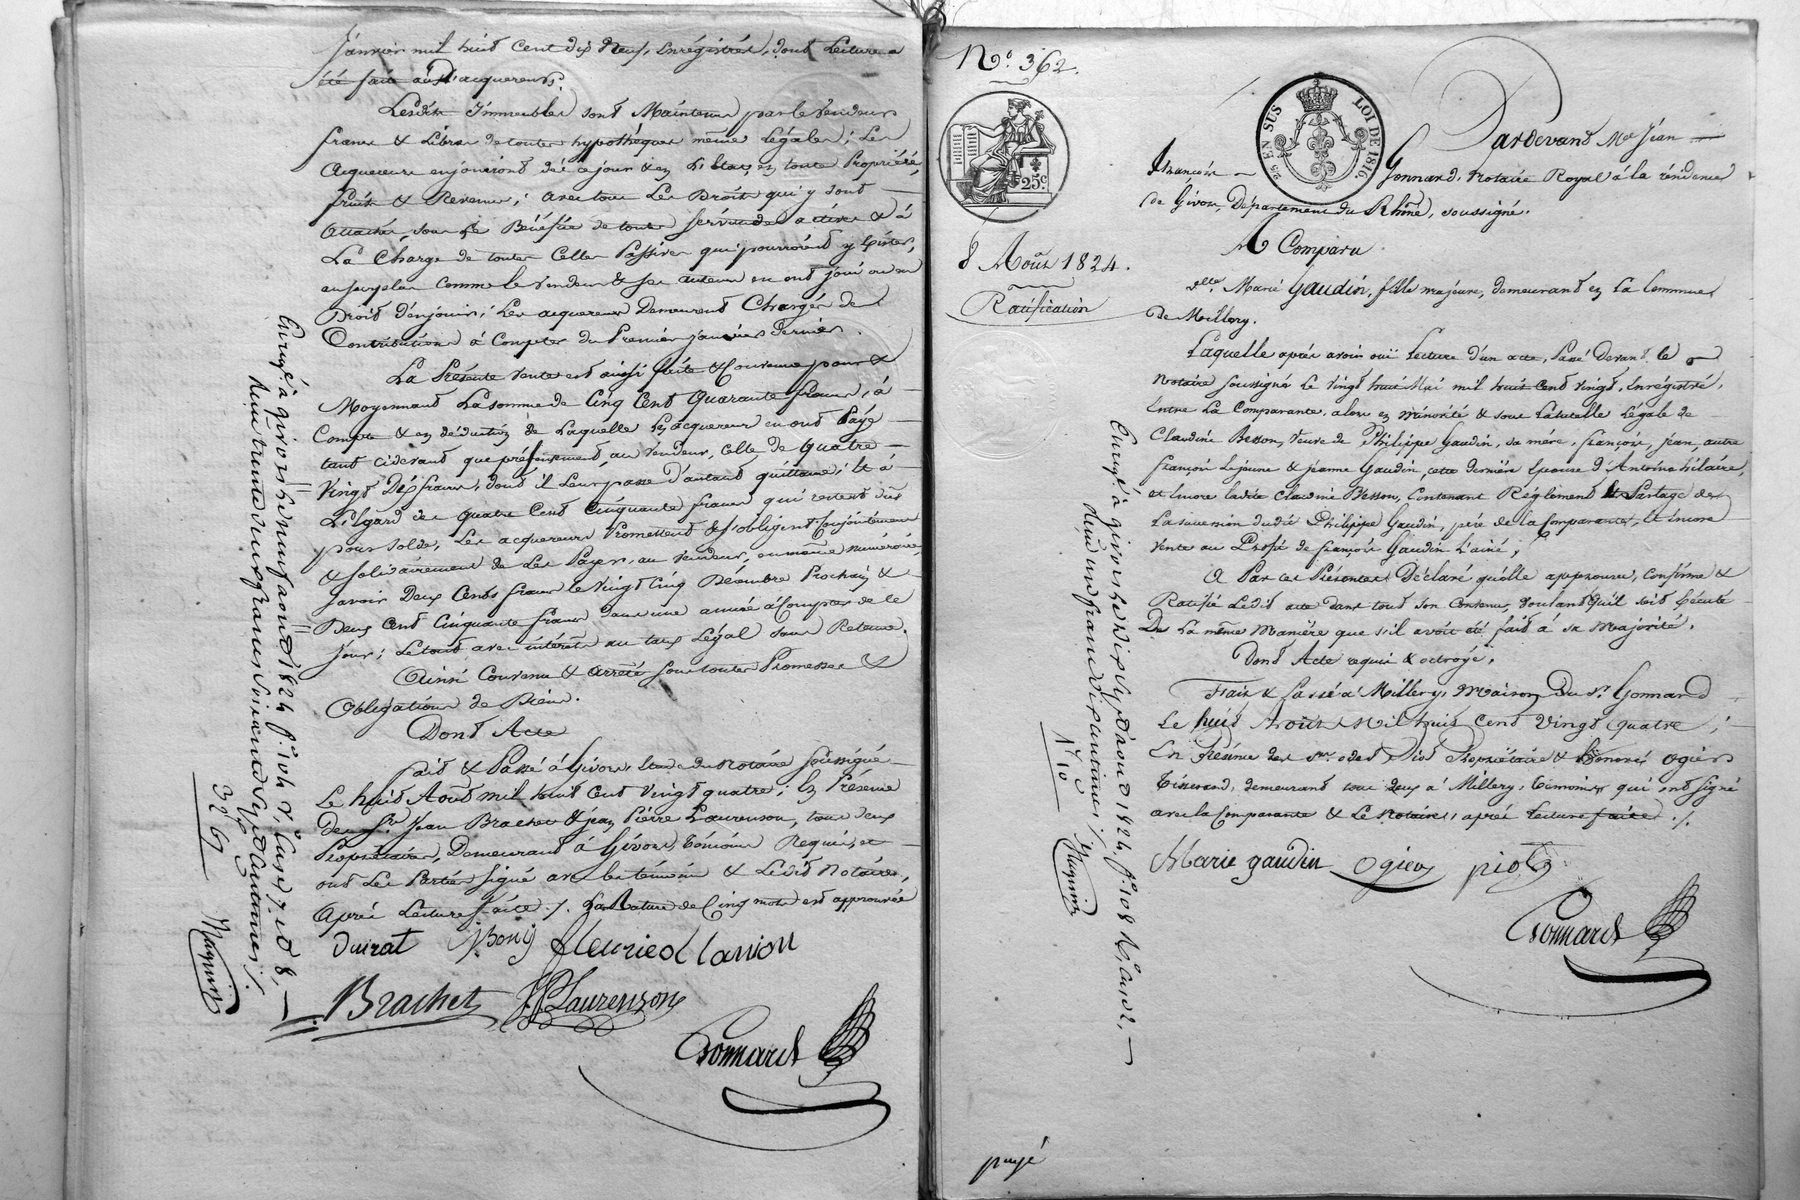 Janvier mil huit cent dix Neuf, Enrégistrée, dont Lecture a
été faite aux acquereurs.
Lesdits Immeubles sont Maintenus par le Vendeur
francs & Libres de toutes hypothèques même Légales; Les
Acquereurs en jouiront dès ce jour & en l'Etat, en toute Propriété,
fruits & Revenus; avec tous Les Droits qui y sont
Attachés, sous Le Bénéfice de toutes servitudes actives & à
La Charge de toutes Celles Passives qui pourroient y Exister,
en jouir comme le Vendeur & ses auteurs en ont joui ou eu
Droit d'en jouir; Les acquereurs Demeurent Chargés des
Contributions à Compter du Premier janvier dernier.
La Présente Vente est ainsi faite & Convenue pour &
Moyennant La somme de Cinq Cent Quarante francs, à
Compte & en déduction de Laquelle les acquereurs en ont Payé
tant cidevant que présentement, au Vendeur, celle de quatre
Vingt Dix francs, dont il Leur passe D'autant quittance; Et à
L'Egard des quatre Cent Cinquante francs qui restent dus
pour solde, Les acquereurs Promettent & s'obligent conjointement
& solidairement de Les Payer au Vendeur, en même numéraire,
savoir Deux Cents francs le Vingt Cinq Décembre Prochain &
Deux Cent Cinquante francs dans une année à Compter de ce
jour; Le tout avec intérêts au taux Légal sans Retenue.
Ainsi Convenu & arrêté sous toutes Promesses &
Obligations de Biens.
Dont Acte
fait & Passé à Givors, Etude du Notaire soussigné
Le huit Août mil huit Cent Vingt quatre; En Présence
des Srs Jean Brachet & Jean Pierre Laurenson, tous deux
Propriétaires, Demeurant à Givors, témoins Requis, et
ont Les Parties signé avec les témoins & Ledit Notaire,
Après Lecture faite ./. La Rature de Cinq mots est approuvée
Duirat Bony fleurie Clanion
Brachet JP Laurenson
Gonnard
Enregé à givors le neuf août 1824 fo 101
32 67
Nugnin
No. 362.
25 EN SUS LOI DE 1816.
25c.
8 Août 1824.
Ratification
Pardevant Me Jean
François
Gonnard, Notaire Royal à la résidence
de Givors, Département du Rhône, soussigné.
A Comparu
elle. Marie Gaudin, fille majeure, demeurant en La Commune
de Millery.
Laquelle après avoir ouï Lecture d'un acte, Passé devant le
Notaire soussigné le vingt huit Mai mil huit cent vingt, Enrégistré,
Entre La Comparante, alors en minorité & sous la tutelle légale de
Claudine Besson, Veuve de Philippe Gaudin, sa mère, françois, jean, autre
françois Lejeune & jeanne Gaudin, cette dernière Epouse d'Antoine hilaire,
et Encore ladite Claudine Besson, Contenant Règlement & Partage de
La succession dudit Philippe Gaudin, père de la Comparante, Et Encore
Vente au Profit de françois Gaudin L'ainé;
A Par ces Présentes Déclaré qu'elle approuve, confirme &
Ratifie Ledit acte dans tout son Contenu, Voulant qu'il soit Exécuté
De La même Manière que s'il avoit été fait à sa Majorité.
Dont Acte requis & octroyé.
Fait & Passé à Millery, Maison Du Sr. Gonnard
Le huit Août Mil huit Cent Vingt quatre;
En Présence des Srs Piot Propriétaire & Ogier
Tisserand, demeurant tous deux à Millery, témoins qui ont signé
avec la Comparante & Le Notaire, après Lecture faite ./.
Marie gaudin Ogier piot
Gonnard
Enregé à givors le dix Sept août 1824, fo 108
1f 10
Nugnin
payé